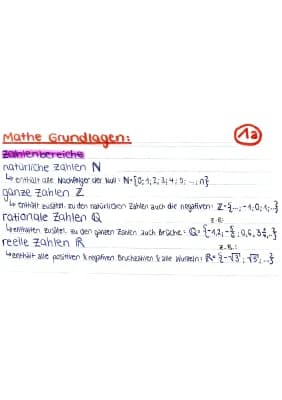 Mathe Grundlagen:
1a
Zahlenbereiche
natürliche Zahlen ℕ
↳ enthält alle Nachfolger der Null: ℕ={0; 1; 2; 3; 4; 5; ...; n}
ganze Zahlen ℤ
↳ enthält zusätzl. zu den natürlichen Zahlen auch die negativen: ℤ={...; -1; 0; 1;...}
rationale Zahlen ℚ
z.B.:
↳ enthalten zusätzl. zu den ganzen Zahlen auch Brüche: ℚ={-1,2; ; 0,6; ...}
reelle Zahlen ℝ
z.B.:
↳ enthält alle positiven & negativen Bruchzahlen & alle Wurzeln: ℝ={-√3; √5;...}